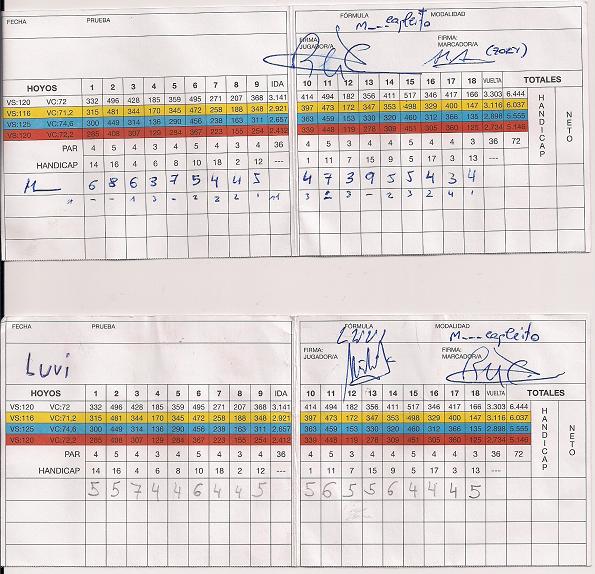 FECHA PRUEBA FÓRMULA MODALIDAD
M---eagleito
FIRMA: JUGADOR/A FIRMA: MARCADOR/A (ZOKY)
HOYOS 1 2 3 4 5 6 7 8 9 IDA 10 11 12 13 14 15 16 17 18 VUELTA TOTALES
VS:120 VC:72 332 496 428 185 359 495 271 207 368 3.141 414 494 182 356 411 517 346 417 166 3.303 6.444
VS:116 VC:71,2 315 481 344 170 345 472 258 188 348 2.921 397 473 172 347 353 498 329 400 147 3.116 6.037
VS:125 VC:74,6 300 449 314 136 290 456 238 163 311 2.657 363 459 153 330 320 460 312 366 135 2.898 5.555
VS:120 VC:72,2 285 408 307 129 284 367 223 155 254 2.412 339 448 119 278 311 451 305 360 125 2.734 5.146
PAR 4 5 4 3 4 5 4 3 4 36 4 5 3 4 4 5 4 4 3 36 72
HANDICAP 14 16 4 6 8 10 18 2 12 --- 1 11 7 15 9 5 17 3 13 ---
HANDICAP NETO
M 6 8 6 3 7 5 4 4 5 4 7 3 9 5 5 4 3 4
FECHA PRUEBA FÓRMULA MODALIDAD
LUVI M---eagleito
Luvi
FIRMA: JUGADOR/A FIRMA: MARCADOR/A
HOYOS 1 2 3 4 5 6 7 8 9 IDA 10 11 12 13 14 15 16 17 18 VUELTA TOTALES
VS:120 VC:72 332 496 428 185 359 495 271 207 368 3.141 414 494 182 356 411 517 346 417 166 3.303 6.444
VS:116 VC:71,2 315 481 344 170 345 472 258 188 348 2.921 397 473 172 347 353 498 329 400 147 3.116 6.037
VS:125 VC:74,6 300 449 314 136 290 456 238 163 311 2.657 363 459 153 330 320 460 312 366 135 2.898 5.555
VS:120 VC:72,2 285 408 307 129 284 367 223 155 254 2.412 339 448 119 278 311 451 305 360 125 2.734 5.146
PAR 4 5 4 3 4 5 4 3 4 36 4 5 3 4 4 5 4 4 3 36 72
HANDICAP 14 16 4 6 8 10 18 2 12 --- 1 11 7 15 9 5 17 3 13 ---
HANDICAP NETO
5 5 7 4 4 6 4 4 5 5 6 5 5 6 4 4 4 5